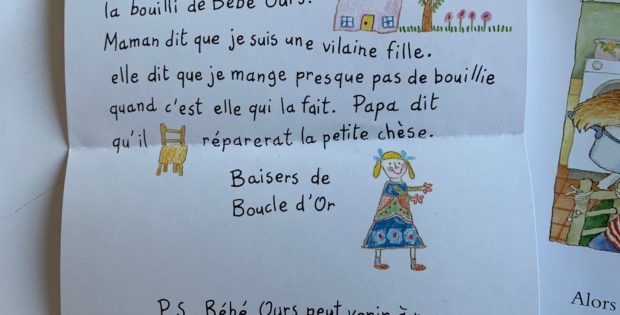 la bouilli de Bébé Ours.
Maman dit que je suis une vilaine fille.
elle dit que je mange presque pas de bouillie
quand c'est elle qui la fait. Papa dit
qu'il réparerat la petite chèse.
Baisers de
Boucle d'Or
P.S. Bébé Ours peut venir à
Alors